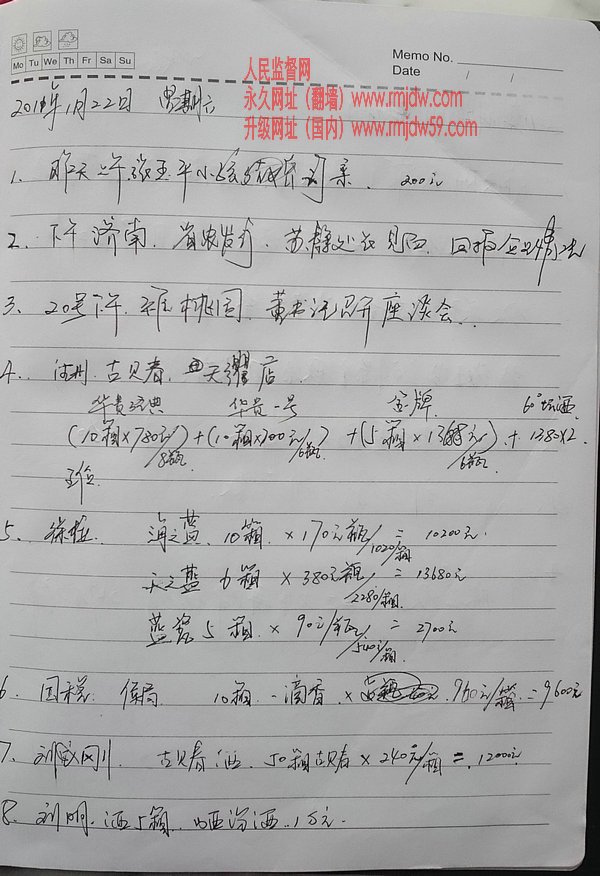 Memo No.
Mo Tu We Th Fr Sa Su
Date / /
人民监督网
永久网址（翻墙）www.rmjdw.com
升级网址（国内）www.rmjdw59.com
2011年1月22日 星期六
1. 昨天上午张玉平小孩结婚 200元
2. 下午济南.省农发行.苏静处长见面.回报企业情况
3. 20号下午.桃园.黄书记召开座谈会..
4. 古贝春 天衢店
华贵经典 华贵一号 金牌 60°坛酒
(10箱×780元/8瓶)+(10箱×700元/6瓶) +(5箱× 元/6瓶) + 1380×2
5. 海之蓝 10箱 ×170元/瓶 = 10200元
1020/箱
天之蓝 6箱 ×380元/瓶 = 13680元
2280/箱
蓝瓷 5箱 × 90元/瓶 = 2700元
540元/箱
6. 国税 10箱 一滴香 × 960元/箱 = 9600元
7. 刘成刚 古贝春酒 50箱古贝春×240元/箱 = 12000元
8. 刘明.酒5箱. 汾酒..1万元.